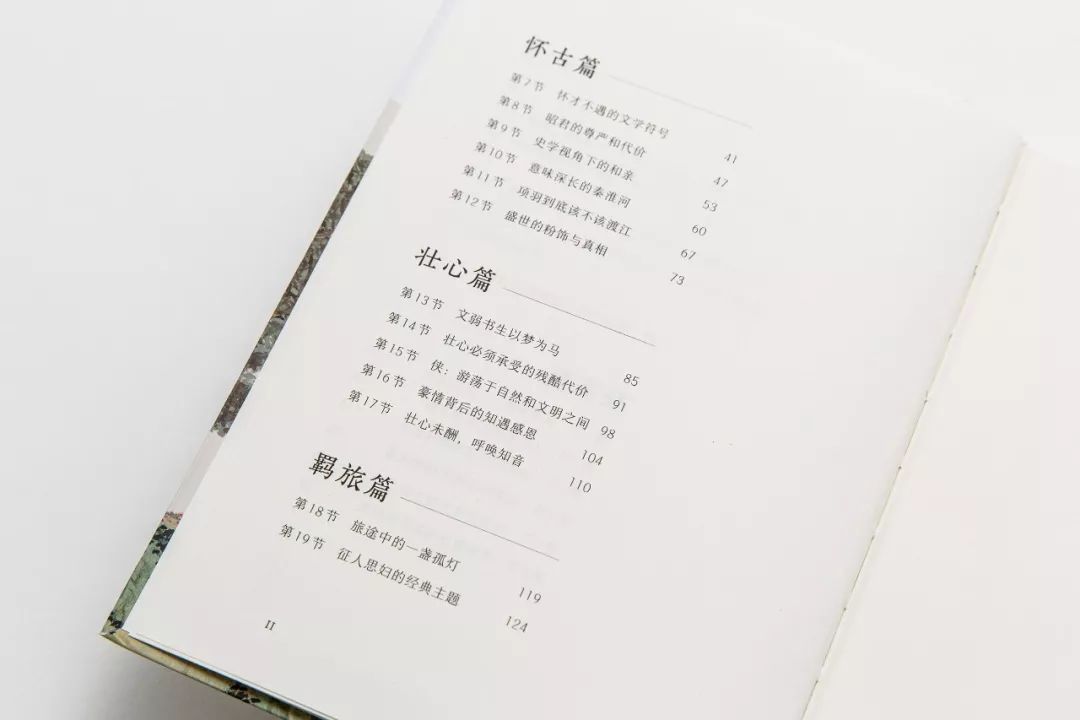 怀古篇
第7节 怀才不遇的文学符号 41
第8节 昭君的尊严和代价 47
第9节 史学视角下的和亲 53
第10节 意味深长的秦淮河 60
第11节 项羽到底该不该渡江 67
第12节 盛世的粉饰与真相 73
壮心篇
第13节 文弱书生以梦为马 85
第14节 壮心必须承受的残酷代价 91
第15节 侠：游荡于自然和文明之间 98
第16节 豪情背后的知遇感恩 104
第17节 壮心未酬，呼唤知音 110
羁旅篇
第18节 旅途中的一盏孤灯 119
第19节 征人思妇的经典主题 124
II